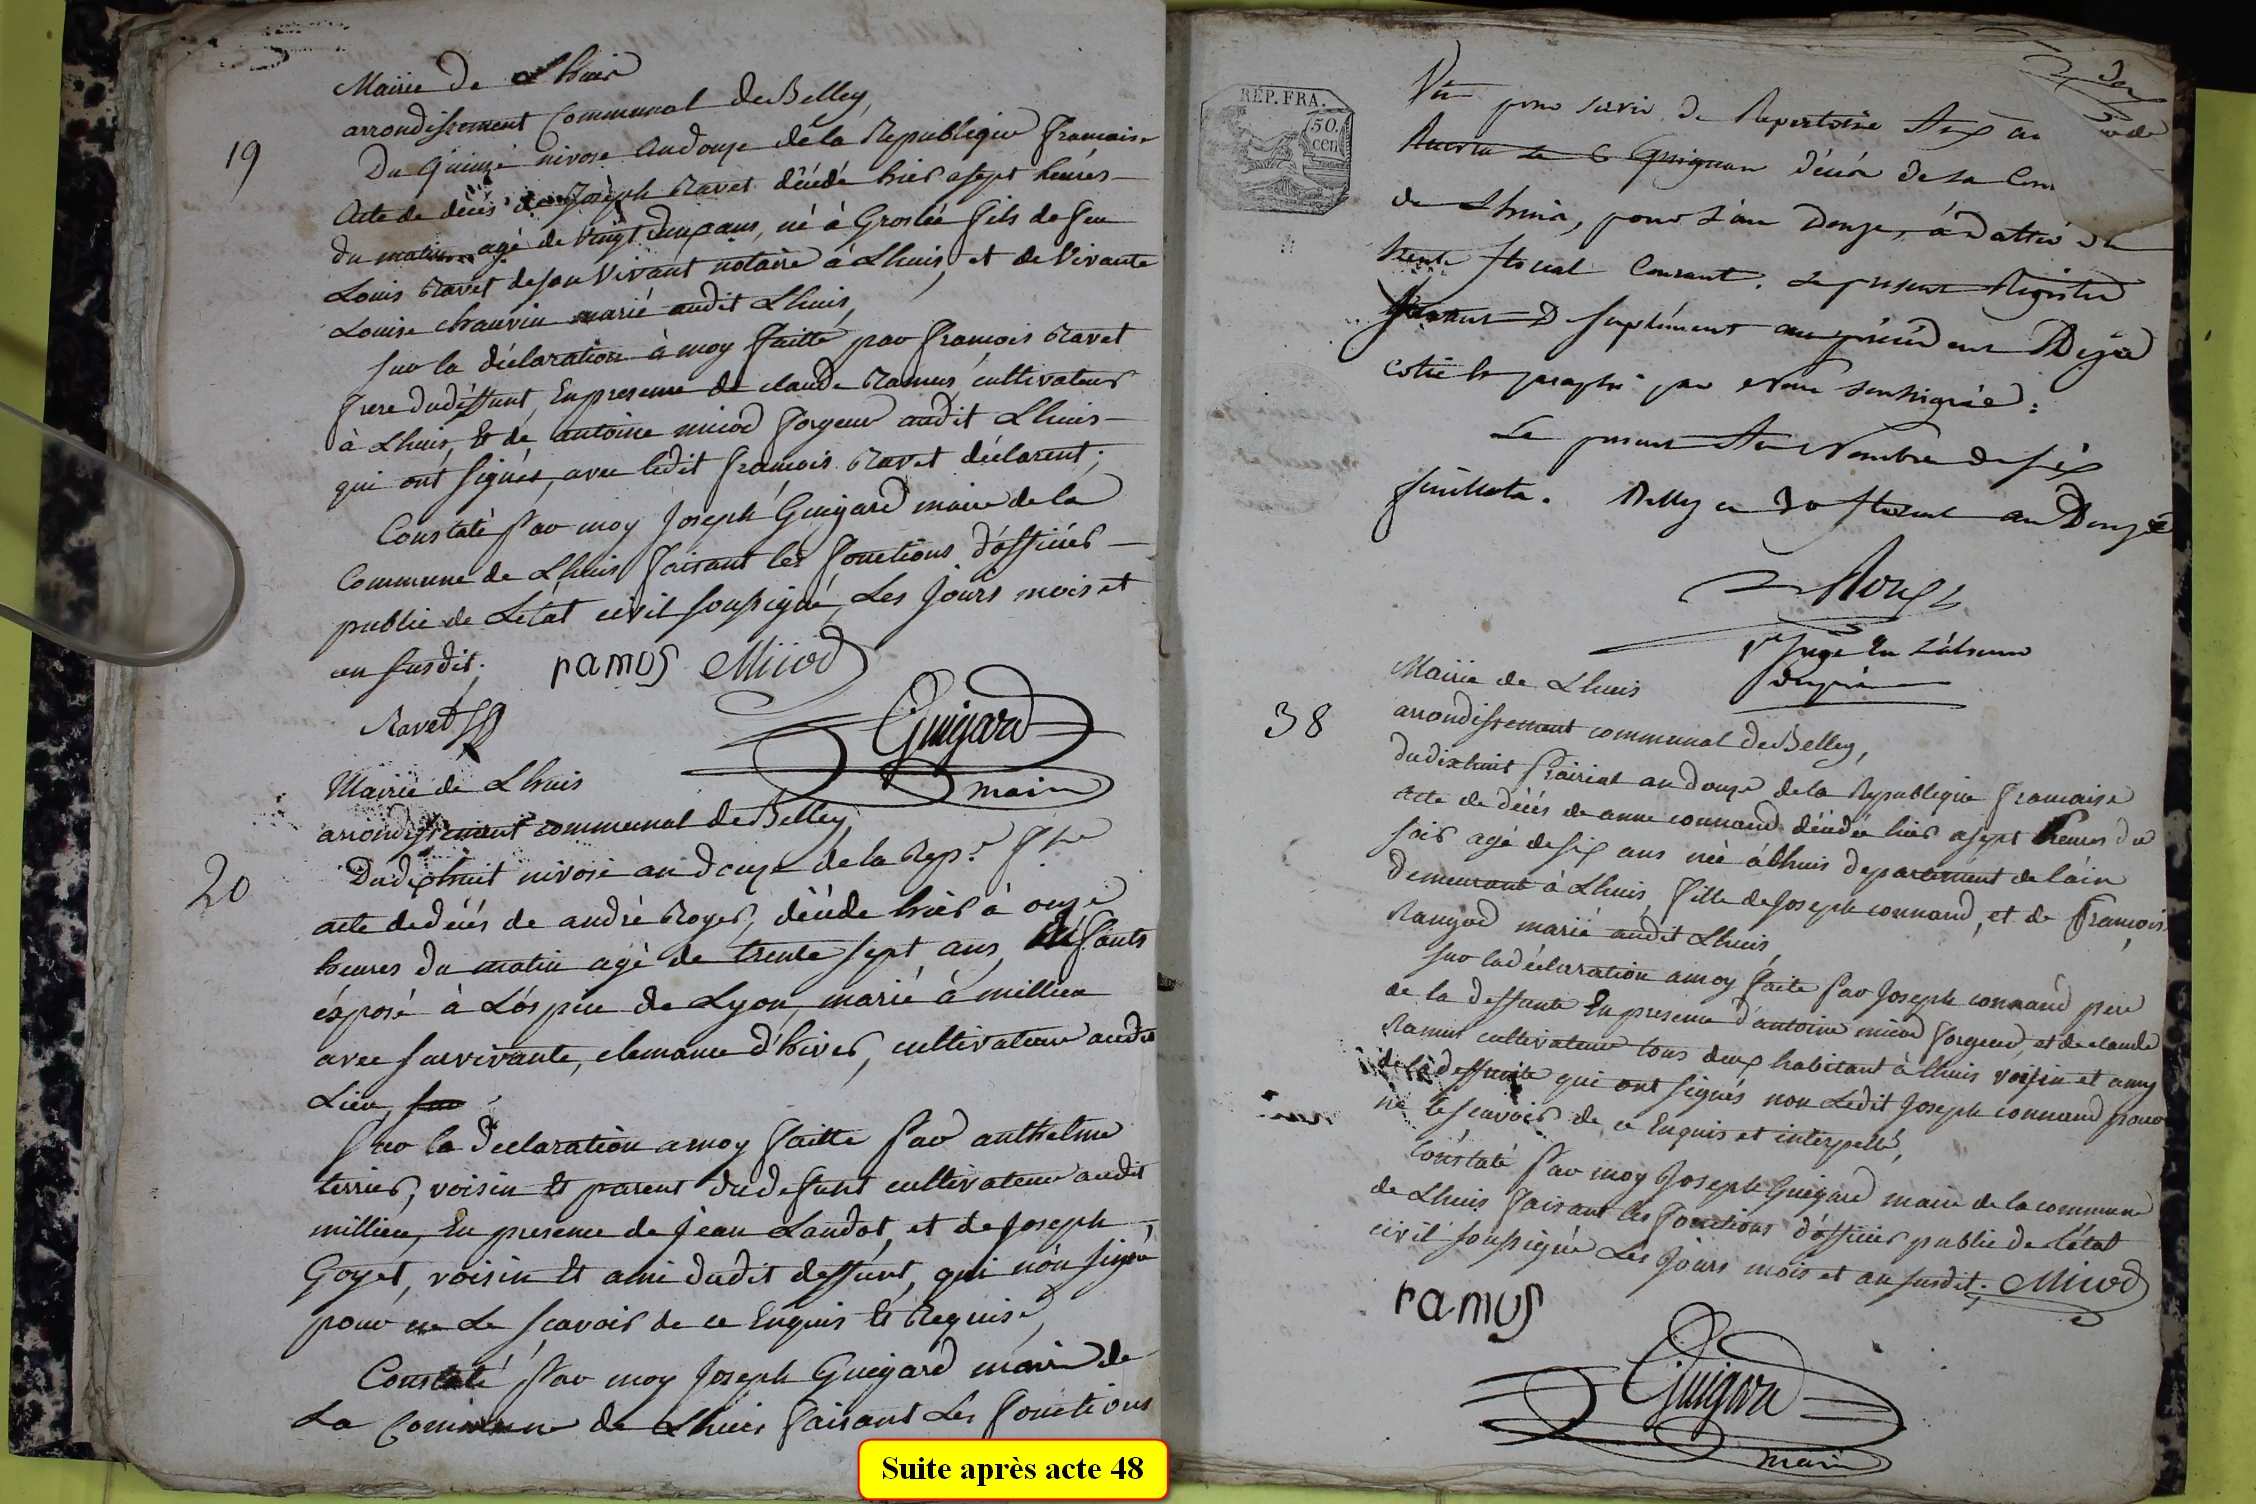 19
Mairie de Lhuis
arrondissement Communal de Belley,
Du Quinze nivose an douze de la Republique francaise
Acte de décés de Joseph Ravet décédé hier a sept heures
du matin agé de vingt deux ans, né à Groslée fils de feu
Louis Ravet de son vivant notaire à Lhuis, et de vivante
Louise chauvin marié audit Lhuis,
sur la déclaration à moy faitte par francois Ravet
frere dudéffunt, En presence de claude Ramus cultivateur
à Lhuis, Et de antoine micod forgeur audit Lhuis
qui ont signés, avec ledit francois Ravet déclarent;
Constaté Par moy Joseph Guigard maire de la
Commune de Lhuis faisant les fonctions d'officier
public de L'état civil soussigné, Les Jours mois et
an susdit.
ramus Micod
Ravet
Guigard
maire
20
Mairie de Lhuis
arrondissement communal de Belley,
Du dixhuit nivose an douze de la Rep.e f.se
acte de décés de andré Royer, décéde hier à onze
heures du matin agé de trente sept ans, Enfants
éxposé à Lospice de Lyon, marié à millieu
avec survivante, clemance d'hiver, cultivateur audit
Lieu, sur
sur la declaration a moy faitte Par anthelme
terrier, voisin Et parent du defunt cultivateur audit
millieu, En presence de jean Landot, et de Joseph
Goyet, voisin Et ami dudit deffunt, qui non signé
pour ne Le scavoir de ce Enquis Et Requis,
Constaté Par moy Joseph Guigard maire de
La Commune de Lhuis faisant Les fonctions
REP. FRA.
50.
cen
Vu pour servir de Repertoire aux
de Lhuis, pour L'an Douze, à datter du
trente floreal Courant. Le present Registre
Servant De Suplément au précédent Déja
cotté Et paraphé par Nous soussigné:
Le present au Nombre de six
feuillets. Belley ce 30 floreal an Douze
Roux
1er Juge En L'absence
38
Mairie de Lhuis
arrondissement communal de Belley,
du dixhuit Prairial an douze de la Republique francaise
Acte de décés de anne connand décédée hier a sept heures du
soir agé de six ans née à Lhuis departement de lain
demeurant à Lhuis, fille de Joseph connand, et de francoise
Rangod marié audit Lhuis,
sur la déclaration a moy faite Par Joseph connand pere
de la deffunte En presence d'antoine micod forgeur, et de claude
Ramus cultivateur tous deux habitant à lhuis voisin et amy
de la deffunte qui ont signés non Ledit Joseph connand pour
ne le scavoir de ce Enquis et interpellé,
Constaté Par moy Joseph Guigard maire de la commune
de Lhuis faisant les fonctions d'officier public de L'état
civil soussigné Les Jours mois et an susdit.
Micod
ramus
Guigard
maire
Suite après acte 48